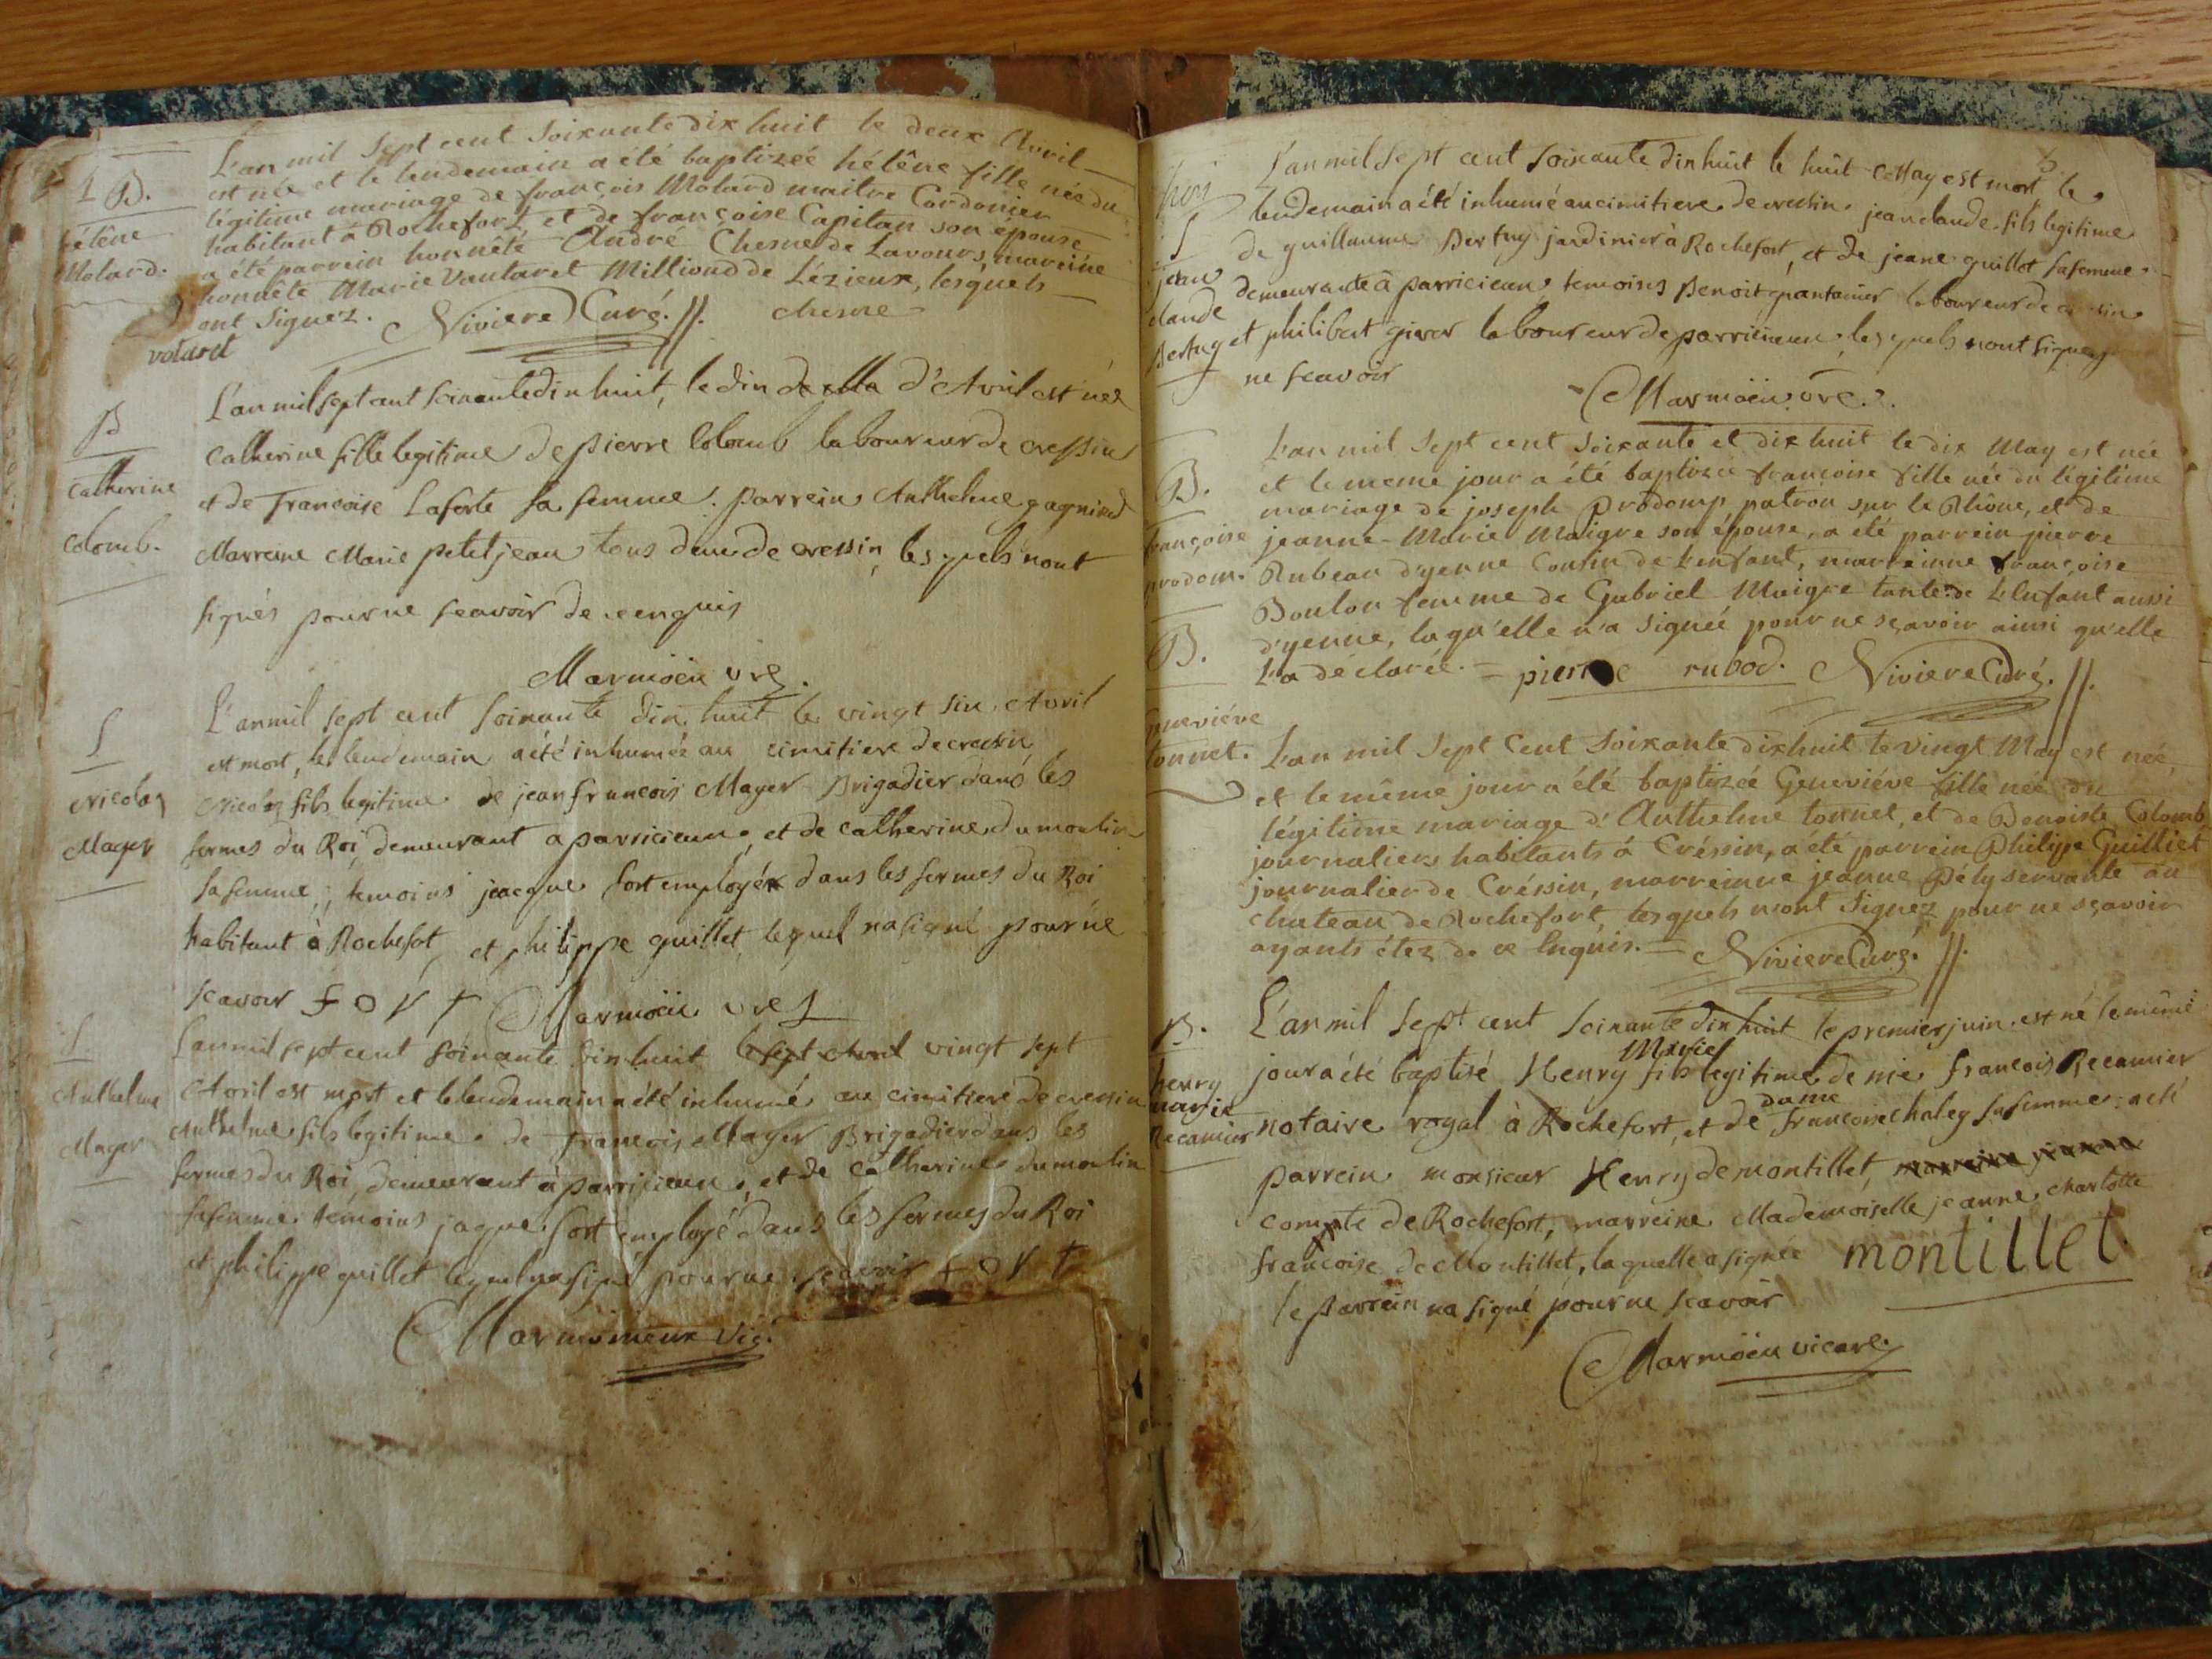 L'an mil Sept cent Soixante dix huit le deux Avril
B.
est née et le lendemain a été baptizeé hélêne fille née du
légitime mariage de françois Molard maitre Cordonier
hélêne
habitant à Rochefort, et de françoise Capitan son epouse
Molard.
a été parrein honnête André Chesne de Lavours, mareine
honnête Marie Vautaret Millioud de Lézieux, lesquels
ont Signez. Niviere Curé. chesne
votaret
L'an mil sept cent soixante dix huit, le dix d'Avril est née
B
Catherine fille legitime de pierre Colomb laboureur de cressin
Catherine
et de Francoise Laforte sa femme. parrein Anthelme gagniod
Colomb.
Marreine Marie petitjean tous deux de cressin, lesquels n'ont
signés pour ne scavoir de ce enquis
Marmöeu vre.
L'an mil sept cent soixante dix huit le vingt six Avril
S
est mort, le lendemain a été inhumée au cimitiere de cressin
Nicolas
Nicolas fils legitime de jean francois Mager Brigadier dans les
Mager
fermes du Roi, demeurant a parricieux, et de catherine dumoulin
sa femme, temoins jacque fort employé dans les fermes du Roi
habitant à Rochefot, et philippe guillet, lequel na signé pour ne
scavoir fort Marmöeu vre
L'an mil sept cent soixante dix huit le sept Avril vingt sept
S
Anthelme
Avril est mort et le lendemain a été inhumé au cimitiere de cressin
Mager
Anthelme fils legitime de francois Mager Brigadier dans les
fermes du Roi, demeurant à parricieux, et de catherine dumoulin
sa femme temoins jaque fort employé dans les fermes du Roi
et philippe guillet lequel na signé pour ne scavoir fort
Marmoieux vic.
L'an mil sept cent soixante dix huit le huit May est mort le
S
lendemain a été inhumé au cimitiere de cressin jean claude fils legitime
jean
de guillaume Bertuy jardinier à Rochefort, et de jeane guillot sa femme
claude
demeurante à parricieux, temoins Benoit pantanier laboureur de cressin
Bertuy
et philibert giver laboureur de parricieux, lesquels nont signez
ne scavoir
Marmöeu vre.
L'an mil Sept cent Soixante et dix huit le dix May est née
B.
et le meme jour a été baptizée françoise fille née du légitime
françoise
mariage de joseph Prodomp, patron sur le Rhône, et de
prodom.
jeanne-Marie Maigre son épouse, a été parrein pierre
Rubeau d'yenne Cousin de L'enfant, marreinne françoise
Boulon femme de Gabriel Maigre tante de L'enfant aussi
d'yenne, laqu'elle n'a Signée pour ne sçavoir ainsi qu'elle
L'a déclarée. = pierre rubod. Niviere Curé.
B.
Geneviéve
tonnet.
L'an mil Sept Cent Soixante dix huit le vingt May est née,
et le même jour a été baptizeé Geneviéve fille née du
légitime mariage d'Anthelme tonnet, et de Benoiste Colomb
journaliers habitants à Créssin, a été parrein Philippe Guilliet
journalier de Créssin, marreinne jeanne Pély servante au
chateau de Rochefort, lesquels n'ont Signez pour ne sçavoir
ayants étez de ce Enquis. = Niviere Curé.
L'an mil sept cent soixante dix huit le premier juin est né le même
B.
jour a été baptisé Henry Marie fils legitime de me francois Recamier
henry
marie
Recamier
notaire royal à Rochefort, et de dame francoise chaley sa femme: a été
parrein monsieur Henry de montillet,
compte de Rochefort, marreine Mademoiselle jeanne charlotte
francoise de Montillet, laquelle a signée montillet.
le parrein na signé pour ne scavoir
Marmöeu vicare